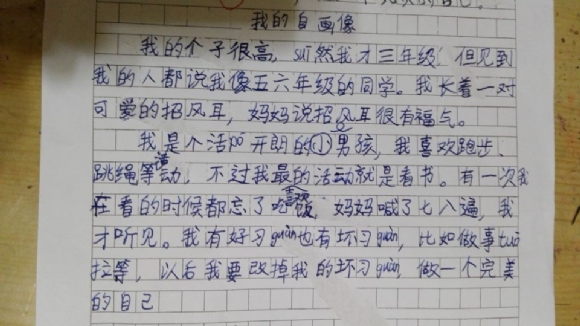 我的自画像
我的个子很高，suī然我才三年级，但见到
我的人都说我像五六年级的同学。我长着一对
可爱的招风耳，妈妈说招风耳很有福气。
我是个活pō开朗的小男孩，我喜欢跑步、
跳绳等活动，不过我最喜欢的活动就是看书。有一次我
在看的时候都忘了吃饭，妈妈喊了七八遍，我
才听见。我有好习guàn也有坏习guàn，比如做事tuō
拉等，以后我要改掉我的坏习guàn，做一个完美
的自己